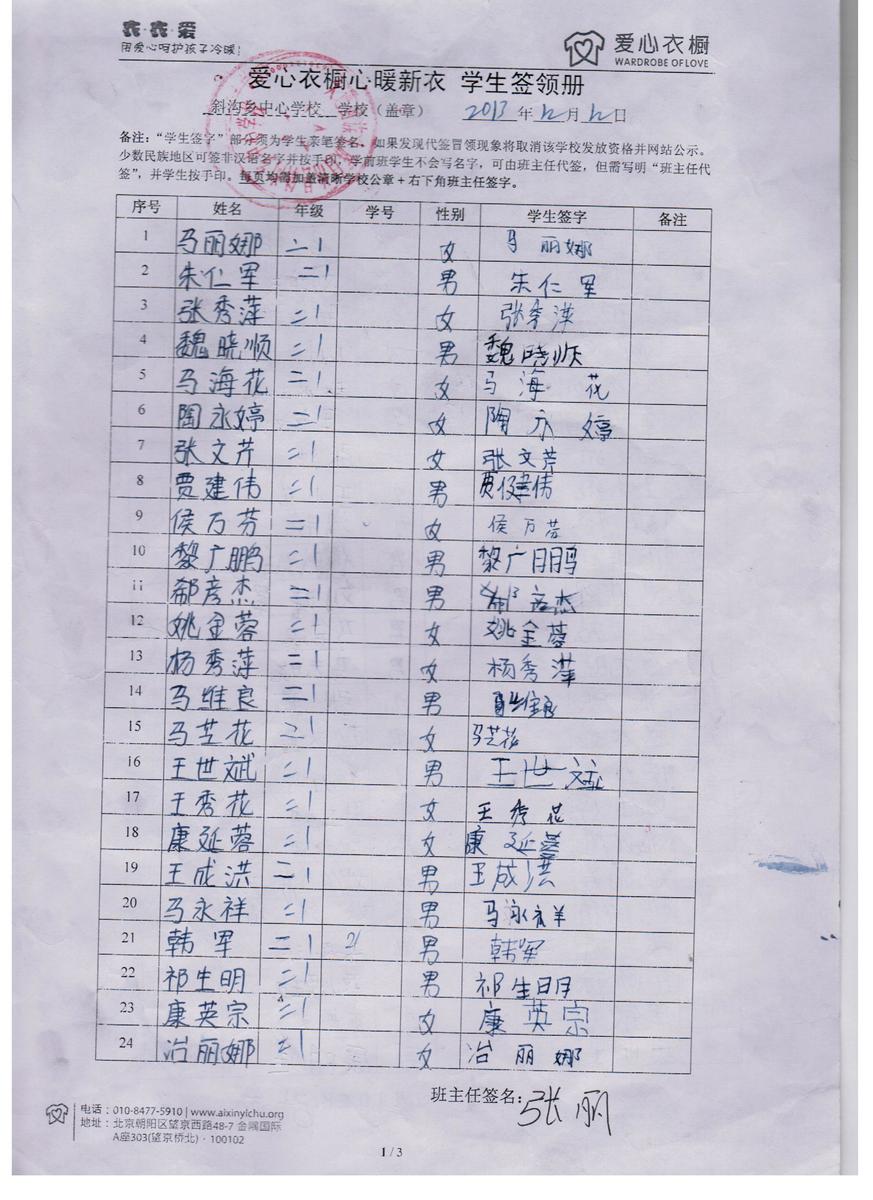 衣·衣·爱
用爱心呵护孩子冷暖!
爱心衣橱
WARDROBE OF LOVE
爱心衣橱心暖新衣 学生签领册
斜沟乡中心学校 学校（盖章） 2013年12月12日
备注：“学生签字”部分须为学生亲笔签名，如果发现代签冒领现象将取消该学校发放资格并网站公示。
少数民族地区可签非汉语名字并按手印，学前班学生不会写名字，可由班主任代签，但需写明“班主任代
签”，并学生按手印。每页均需加盖清晰学校公章+右下角班主任签字。
序号 姓名 年级 学号 性别 学生签字 备注
1 马丽娜 二1 女 马丽娜
2 朱仁军 二1 男 朱仁军
3 张秀萍 二1 女 张秀萍
4 魏晓顺 二1 男 魏晓顺
5 马海花 二1 女 马海花
6 陶永婷 二1 女 陶永婷
7 张文芹 二1 女 张文芹
8 贾建伟 二1 男 贾健伟
9 侯万芳 二1 女 侯万芳
10 黎广鹏 二1 男 黎广鹏
11 郗彦杰 二1 男 郗彦杰
12 姚金蓉 二1 女 姚金蓉
13 杨秀萍 二1 女 杨秀萍
14 马维良 二1 男 马维良
15 马芝花 二1 女 马芝花
16 王世斌 二1 男 王世斌
17 王秀花 二1 女 王秀花
18 康延蓉 二1 女 康延蓉
19 王成洪 二1 男 王成洪
20 马永祥 二1 男 马永祥
21 韩军 二1 21 男 韩军
22 祁生明 二1 男 祁生明
23 康英宗 二1 女 康英宗
24 冶丽娜 二1 女 冶丽娜
班主任签名：张丽
电话：010-8477-5910 | www.aixinyichu.org
地址：北京朝阳区望京西路48-7 金隅国际
A座303(望京桥北)·100102
1 / 3